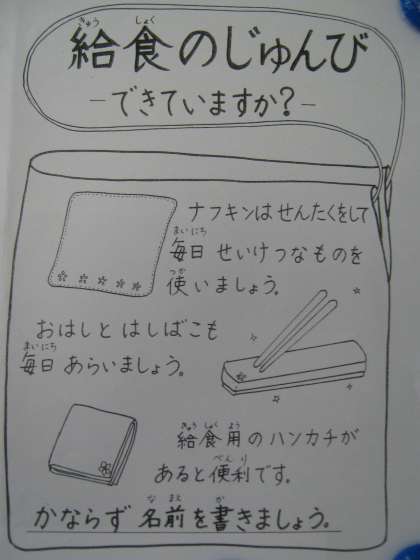 給食のじゅんび
-できていますか?-
ナフキンはせんたくをして
毎日せいけつなものを
使いましょう。
おはしとはしばこも
毎日あらいましょう。
給食用のハンカチが
あると便利です。
かならず名前を書きましょう。